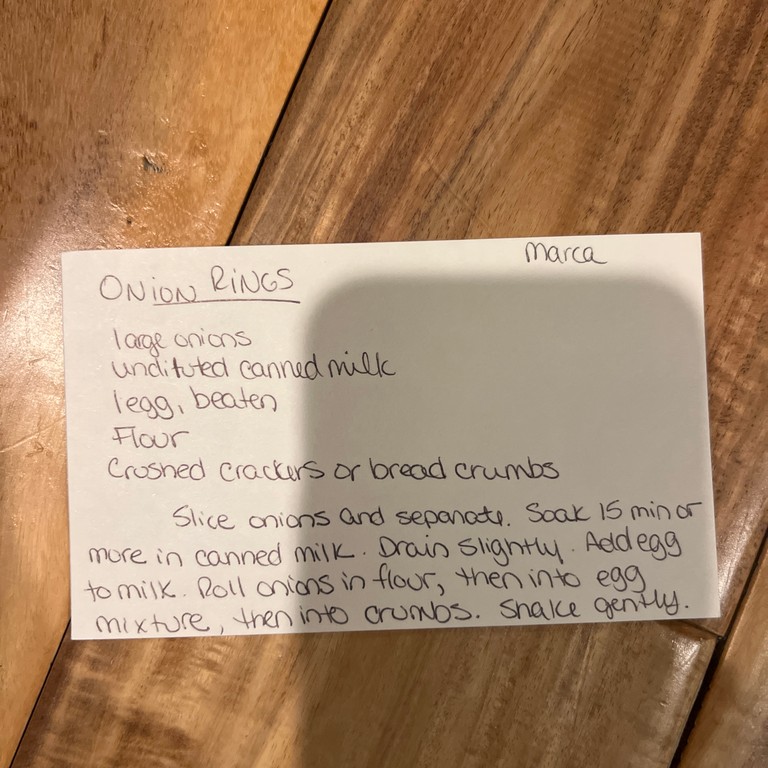 Marca
ONION RINGS
large onions
undiluted canned milk
1 egg, beaten
Flour
Crushed crackers or bread crumbs
Slice onions and separate. Soak 15 min or
more in canned milk. Drain slightly. Add egg
to milk. Roll onions in flour, then into egg
mixture, then into crumbs. Shake gently.